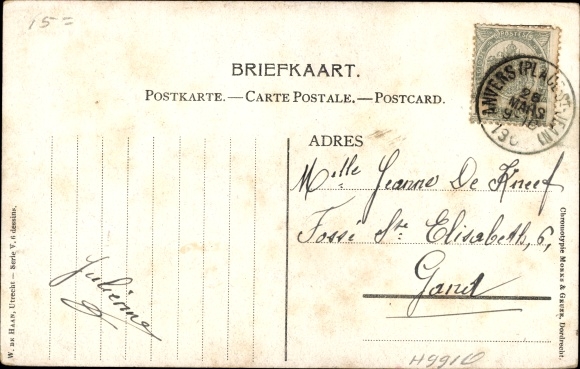 15 =
BRIEFKAART.
POSTKARTE.—CARTE POSTALE.—POSTCARD.
POSTES
ANVERS (PLACE ST-JEAN)
26
MARS
190
ADRES
Melle Jeanne De Kneef
Fossé Ste Elisabeth, 6,
Gand
Julienne
W. DE HAAN, Utrecht — Serie V, 6 dessins.
Chromotypie MORKS & GEUZE, Dordrecht.
H9910